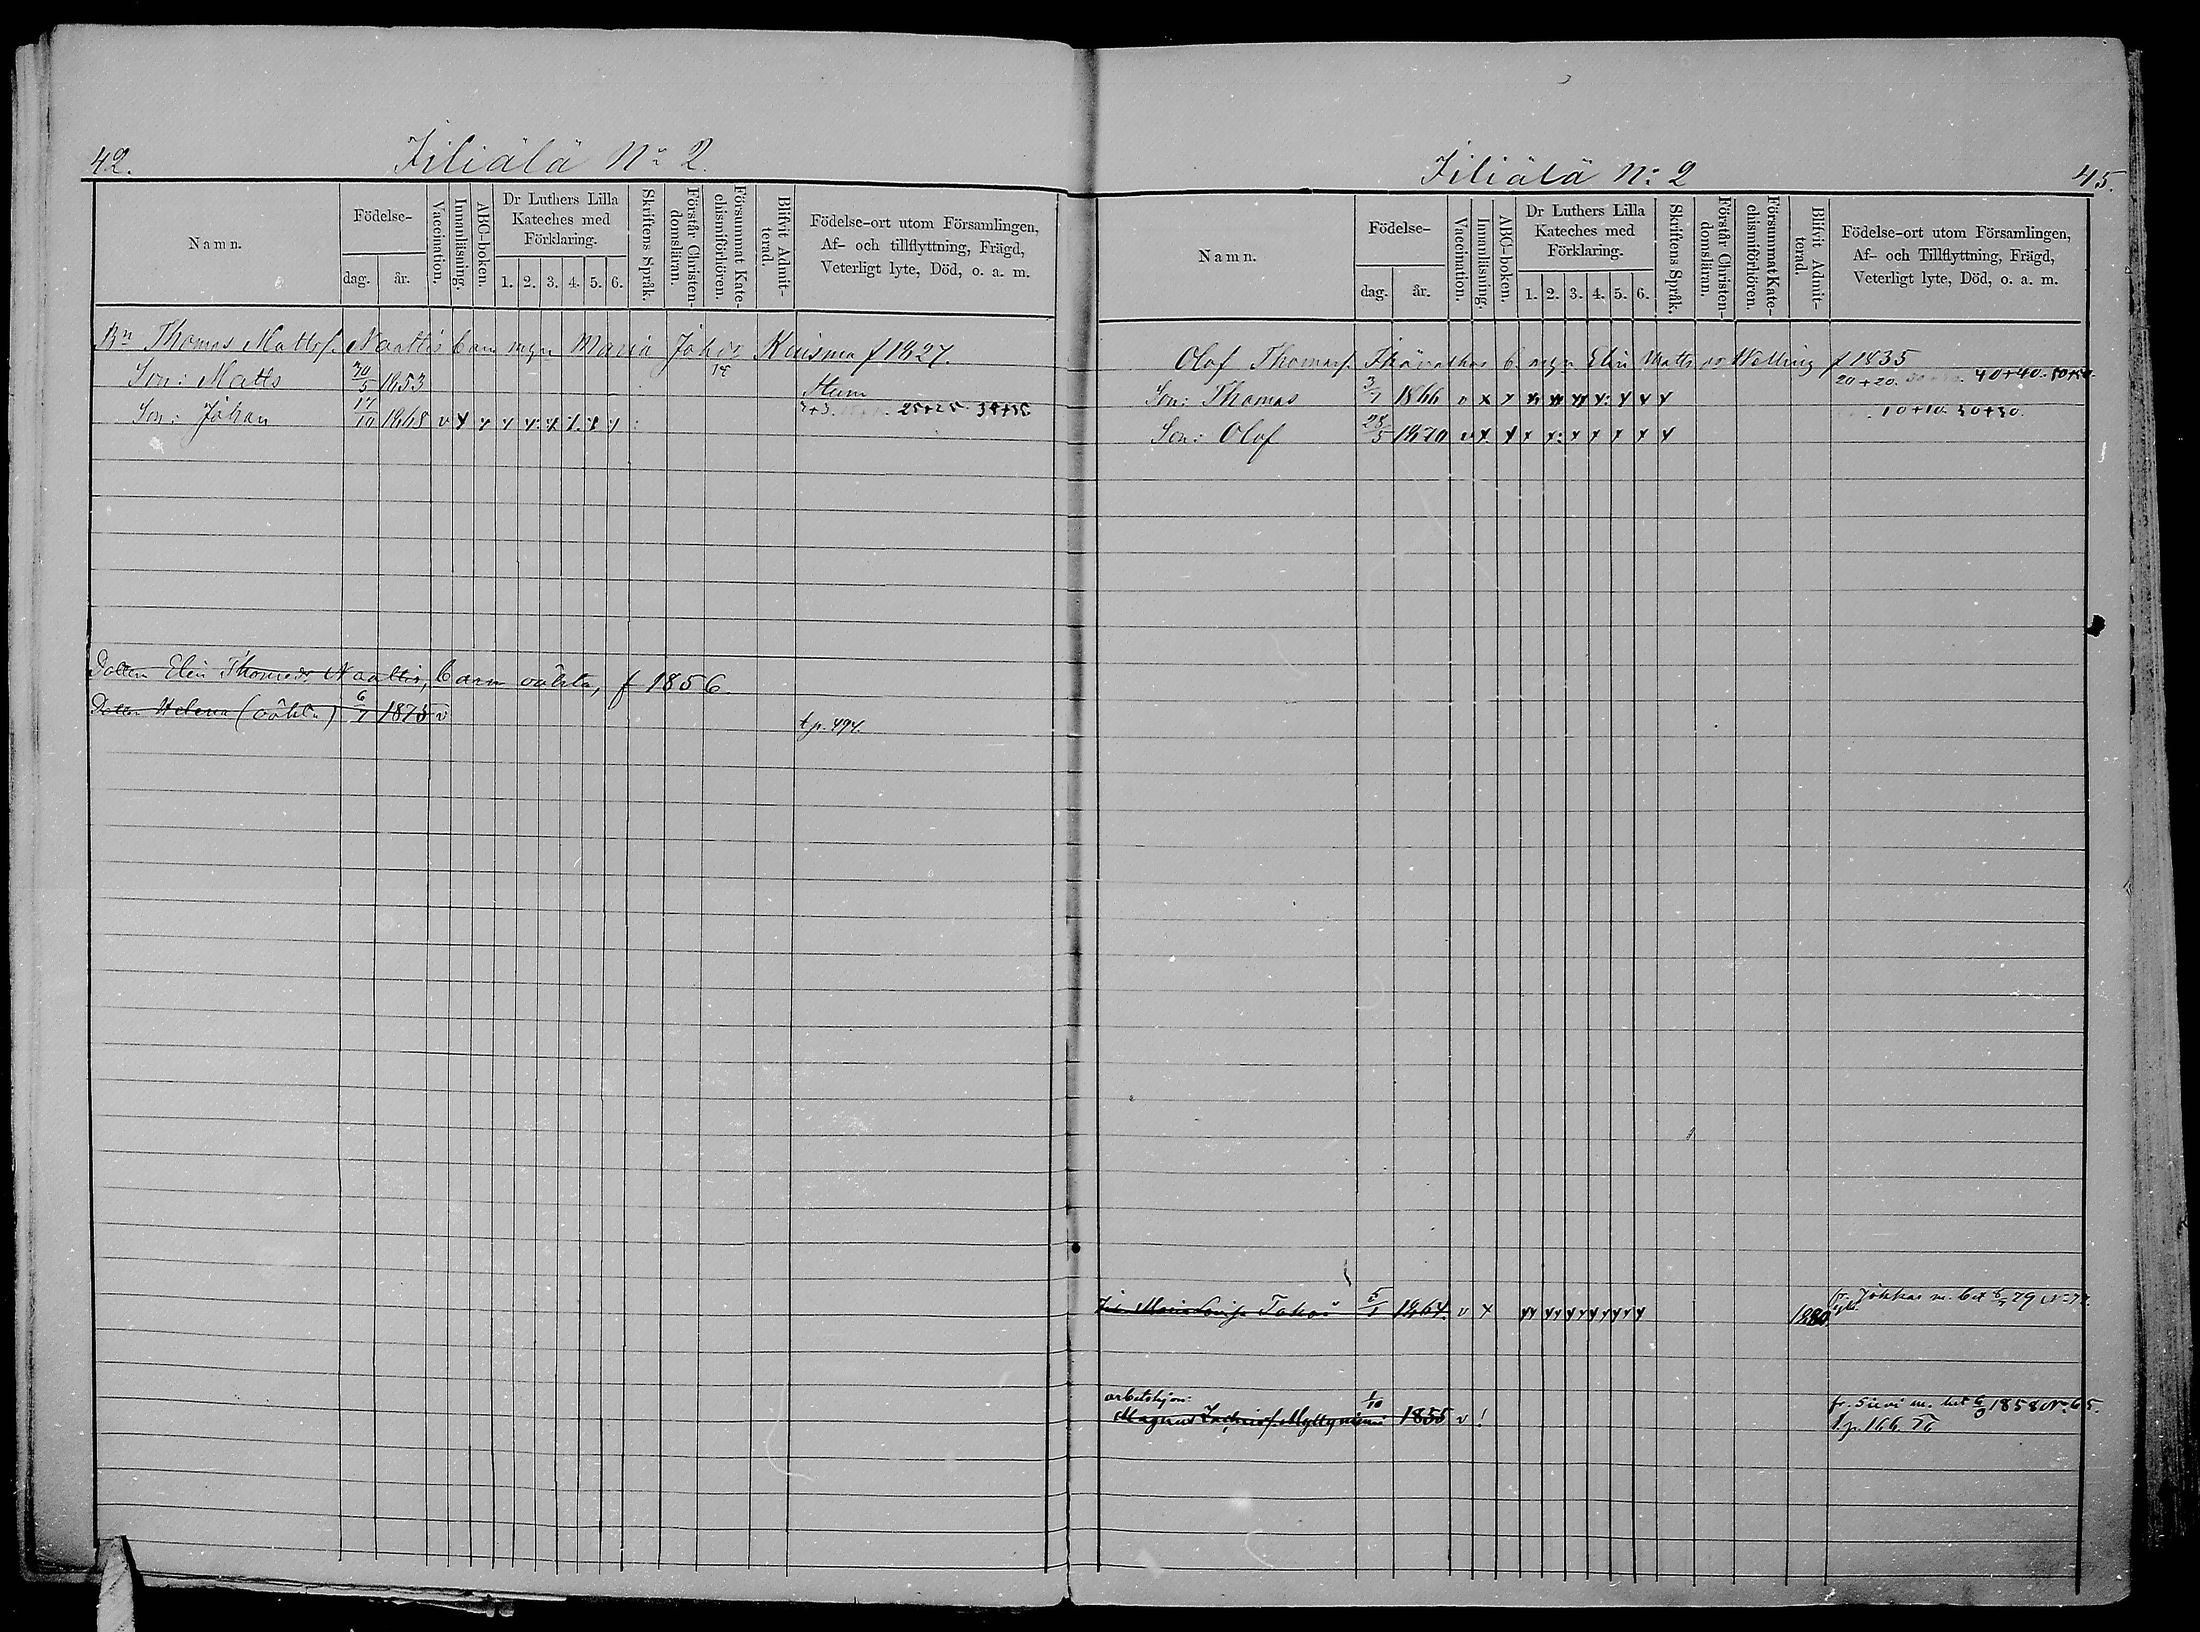 42.
Filiälä No 2.
Namn.
Födelse-
dag.
år.
Vaccination.
Innanläsning.
ABC-boken.
Dr Luthers Lilla
Kateches med
Förklaring.
1. 2. 3. 4. 5. 6.
Skriftens Språk.
Förstår Christen-
domsläran.
Försummat Kate-
chismiförhören.
Blifvit Admit-
terad.
Födelse-ort utom Församlingen,
Af- och tillflyttning, Frägd,
Veterligt lyte, Död, o. a. m.
Bn Thomas Mattss. Naattis barn m Maria Johdr Kuisma f 1827.
Son: Matts 20/5 1853 Stum
Son: Johan 17/10 1868 v 3+3. 25+25
Dottern Elin Thomasdr Naattis, barn oäkta, f 1856.
Dotter Helena (oäkta) 6/7 1875 v t. p. 494.
Filiälä No 2
45.
Namn.
Födelse-
dag.
år.
Vaccination.
Innanläsning.
ABC-boken.
Dr Luthers Lilla
Kateches med
Förklaring.
1. 2. 3. 4. 5. 6.
Skriftens Språk.
Förstår Christen-
domsläran.
Försummat Kate-
chismiförhören.
Blifvit Admit-
terad.
Födelse-ort utom Församlingen,
Af- och Tillflyttning, Frägd,
Veterligt lyte, Död, o. a. m.
Olof Thomass. b. m Elin Matts dr f 1835
Son: Thomas 3/7 1866 v 20+20. 40+40. 50+50.
Son: Olof 28/5 1870 v 10+10. 30+30.
Maria Lovisa 5/1 1864. v 1880. fr. Jokkas m. bet 6/7 79 No 72.
arbetshjon:
Magnus Zachriss. Myllyniemi 1/10 1855 v ! fr. Simi m. bet 6/9 1858 No 65.
t. p. 166.